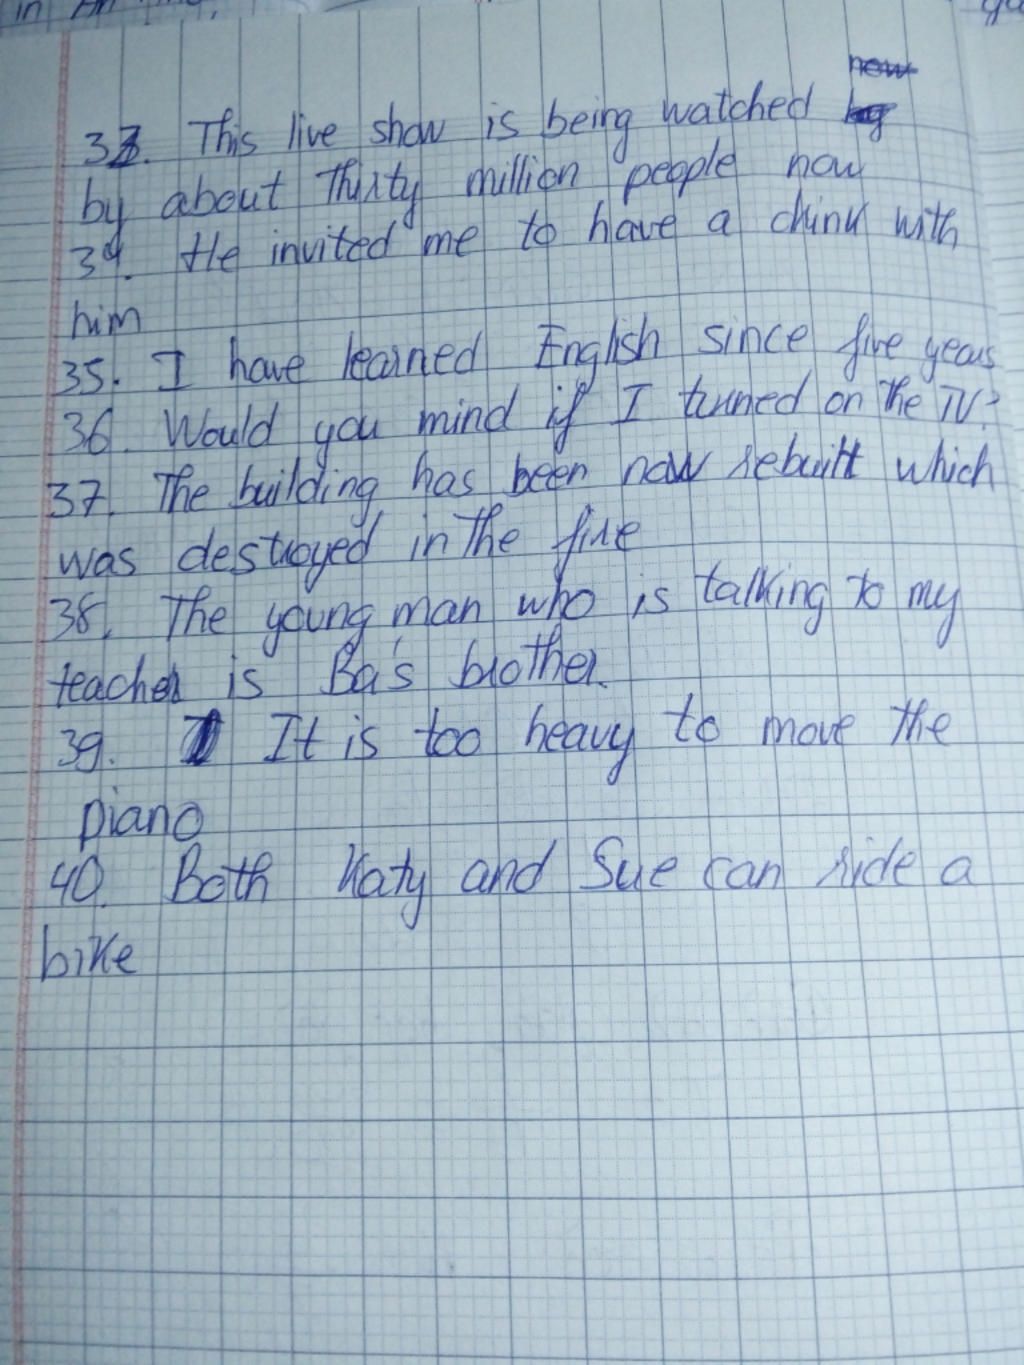 in An
now
33. This live show is being watched
by about Thirty million people now
34. He invited me to have a drink with
him
35. I have learned English since five years
36. Would you mind if I turned on the TV?
37. The building has been now rebuilt which
was destroyed in the fire
38. The young man who is talking to my
teacher is Ba's brother.
39. It is too heavy to move the
piano
40. Both Katy and Sue can ride a
bike